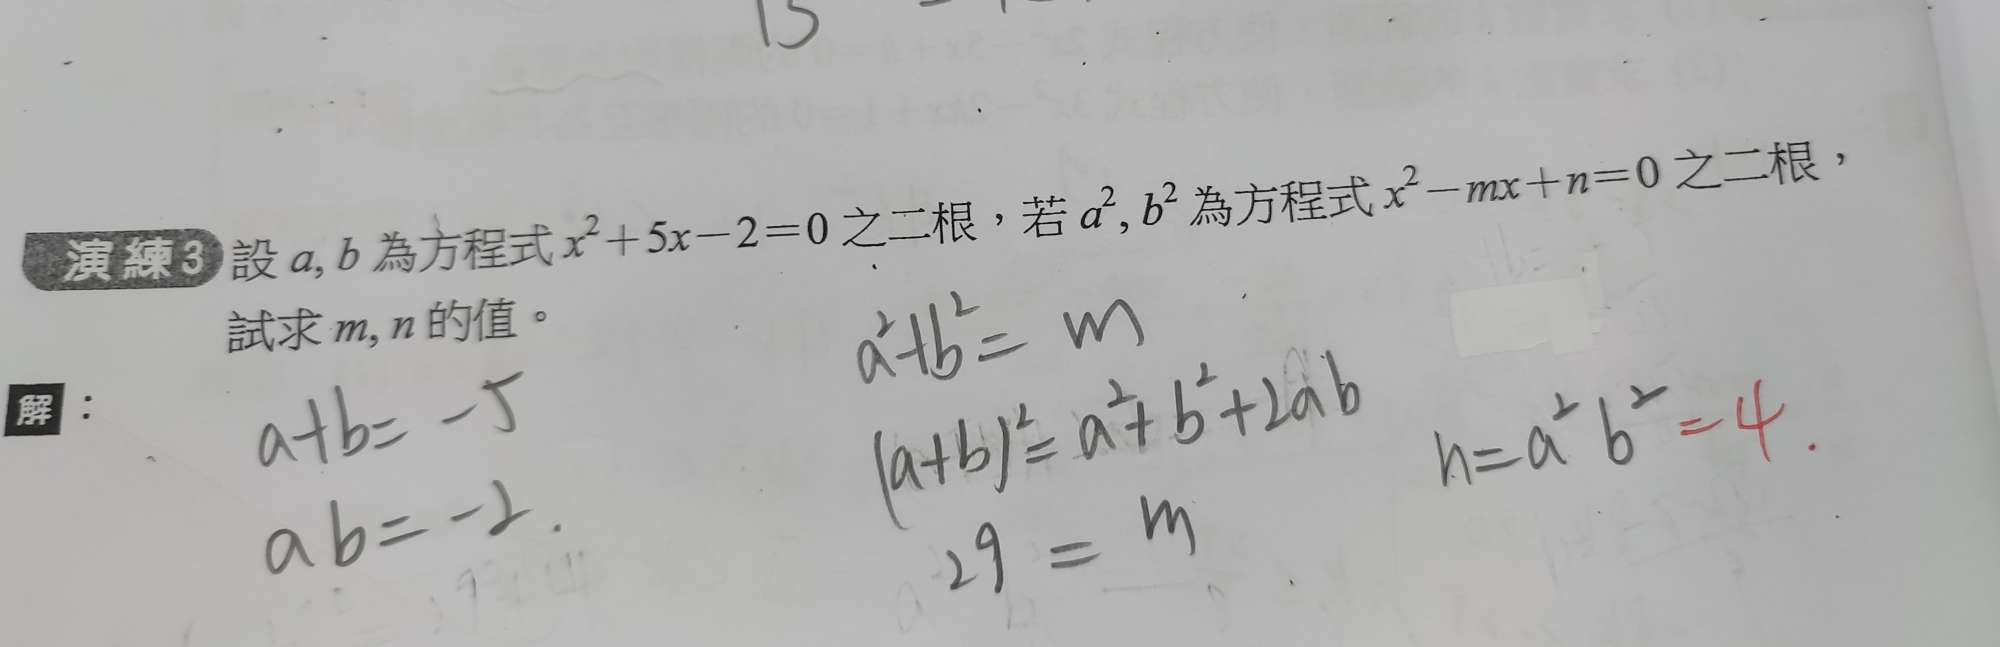 演練3 設 a, b 為方程式 x²+5x−2=0 之二根，若 a², b² 為方程式 x²−mx+n=0 之二根，
試求 m, n 的值。
解：
a+b=−5
ab=−2.
a²+b²=m
(a+b)²=a²+b²+2ab
29=m
n=a²b²=4.